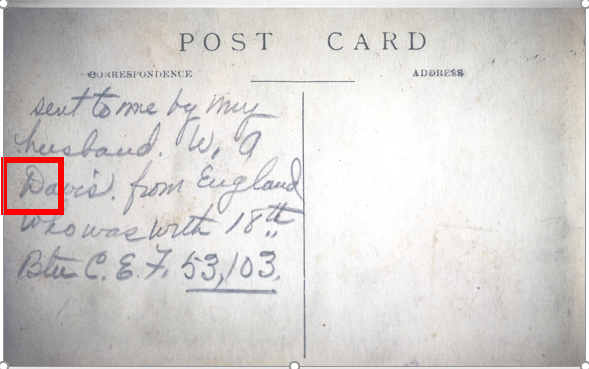 POST CARD
CORRESPONDENCE
ADDRESS
sent to me by my
husband. W. A
Davis. from England
who was with 18th
Btn C. E. F. 53,103.